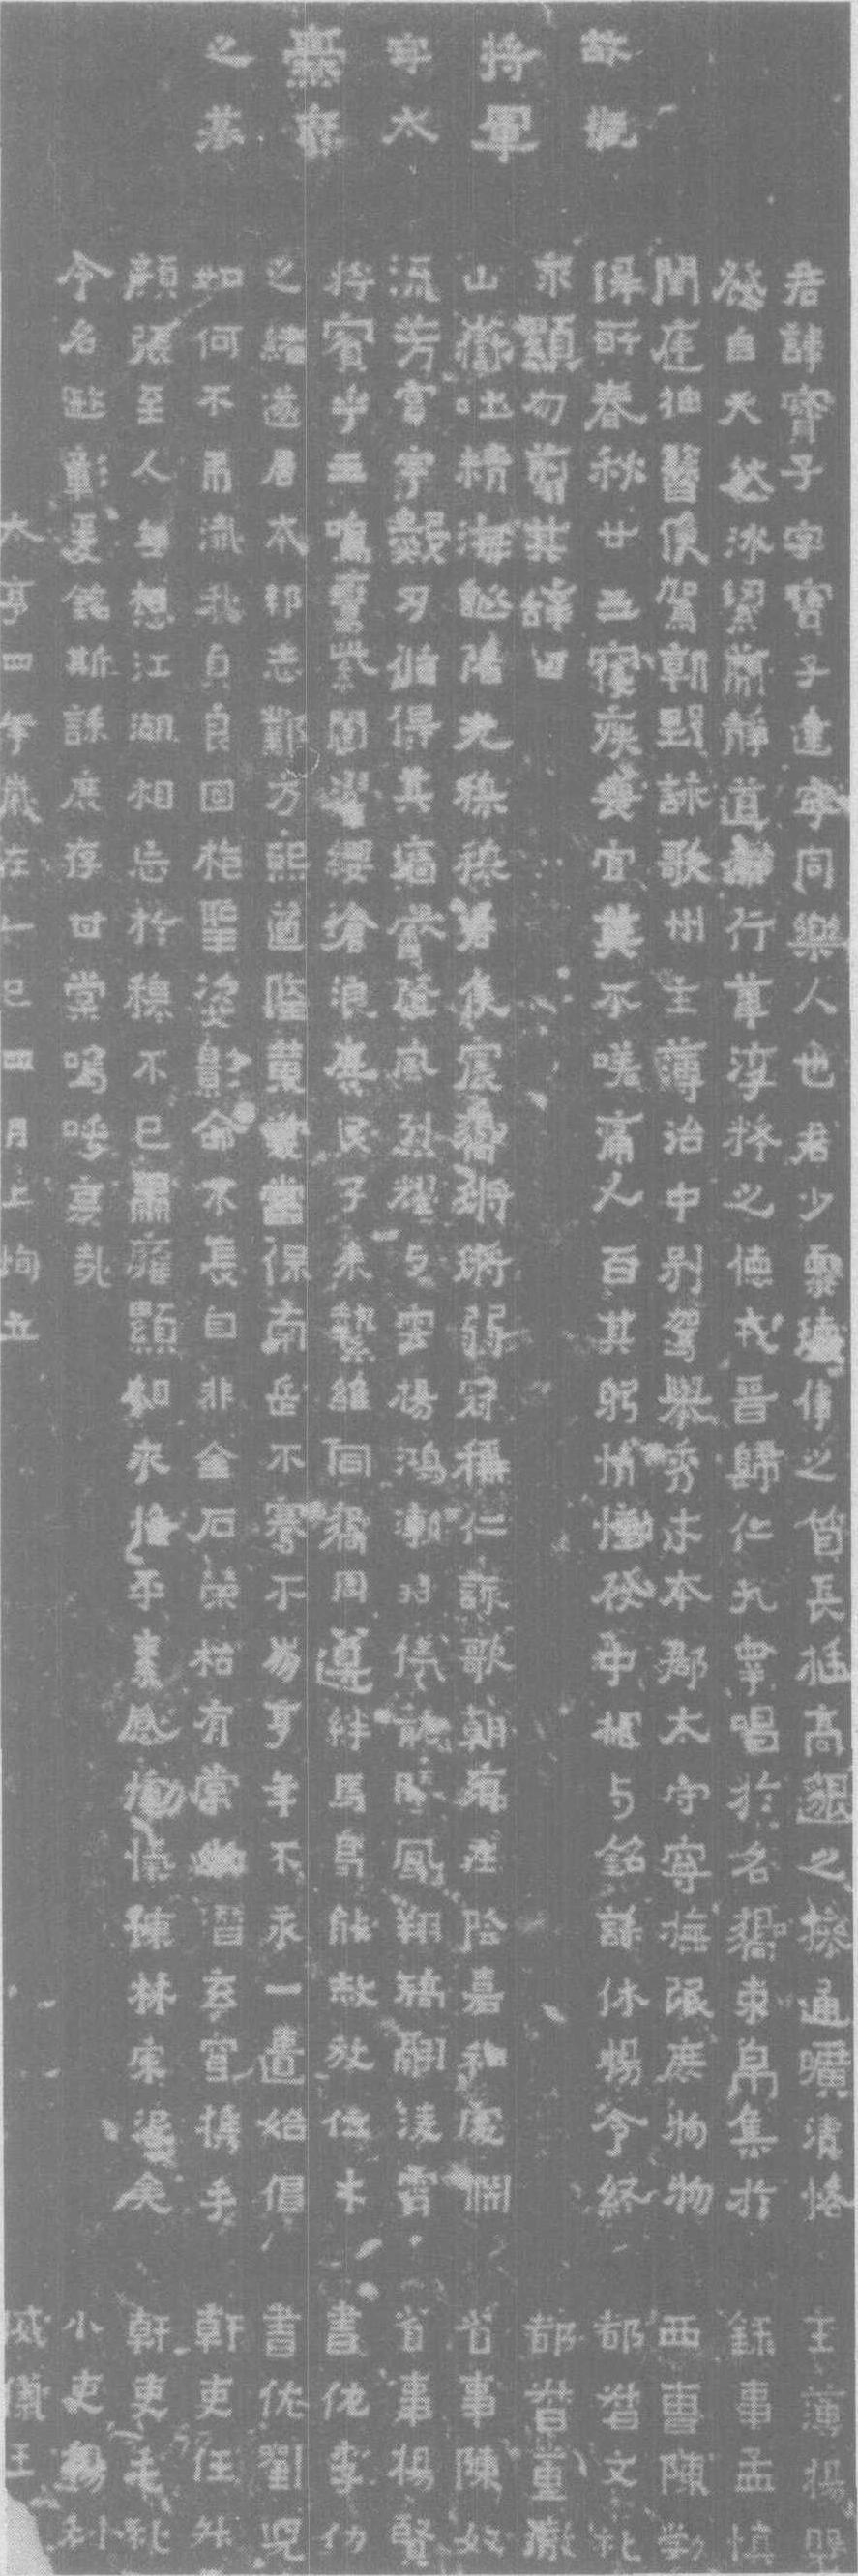 故振
將軍
寧太
爨府
之墓
君諱寶子字寶子建寧同樂人也君少稟瓌偉之質長挺高邈之操通曠清恪
發自天然冰絜簡靜道兼行葦淳粹之德戎晉歸仁九皐唱於名響束帛集於
閨庭抽簪俟駕朝野詠歌州主簿治中別駕舉秀才本郡太守寧撫氓庶物物
得所春秋廿五寑疾喪官莫不嗟痛人百其躬情慟發中相与銘誄休揚令終
永顯勿翦其辭曰
山嶽吐精海誕陟光穆穆君侯震響鏘鏘弱冠稱仁詠歌朝鄉在陰嘉和處淵
流芳宮宇數刃循得其墻馨隨風烈耀与雲揚鴻漸羽儀龍騰鳳翔矯翮淩霄
將賓乎王鳴鸞紫闥濯纓滄浪庶民子來縶維同響周遵絆馬曷能赦放位才
之緒遂居本邦志鄴方熙道隆黃裳當保南岳不騫不崩享年不永一匱始倡
如何不弔殲我貞良回抱聖姿影命不長自非金石榮枯有常幽潛玄宮攜手
顏張至人無想江湖相忘於穆不已肅雍顯相永惟平素感慟愾慷林宗沒矣
令名遐彰爰銘斯誄庶存甘棠嗚呼哀哉
太亨四年歲在乙巳四月上恂立
主簿楊磐
錄事孟慎
西曹陳勃
都督文礼
都督董徹
省事陳奴
省事楊賢
書佐李仂
書佐劉兒
幹吏任升
幹吏毛礼
小吏楊利
威儀王